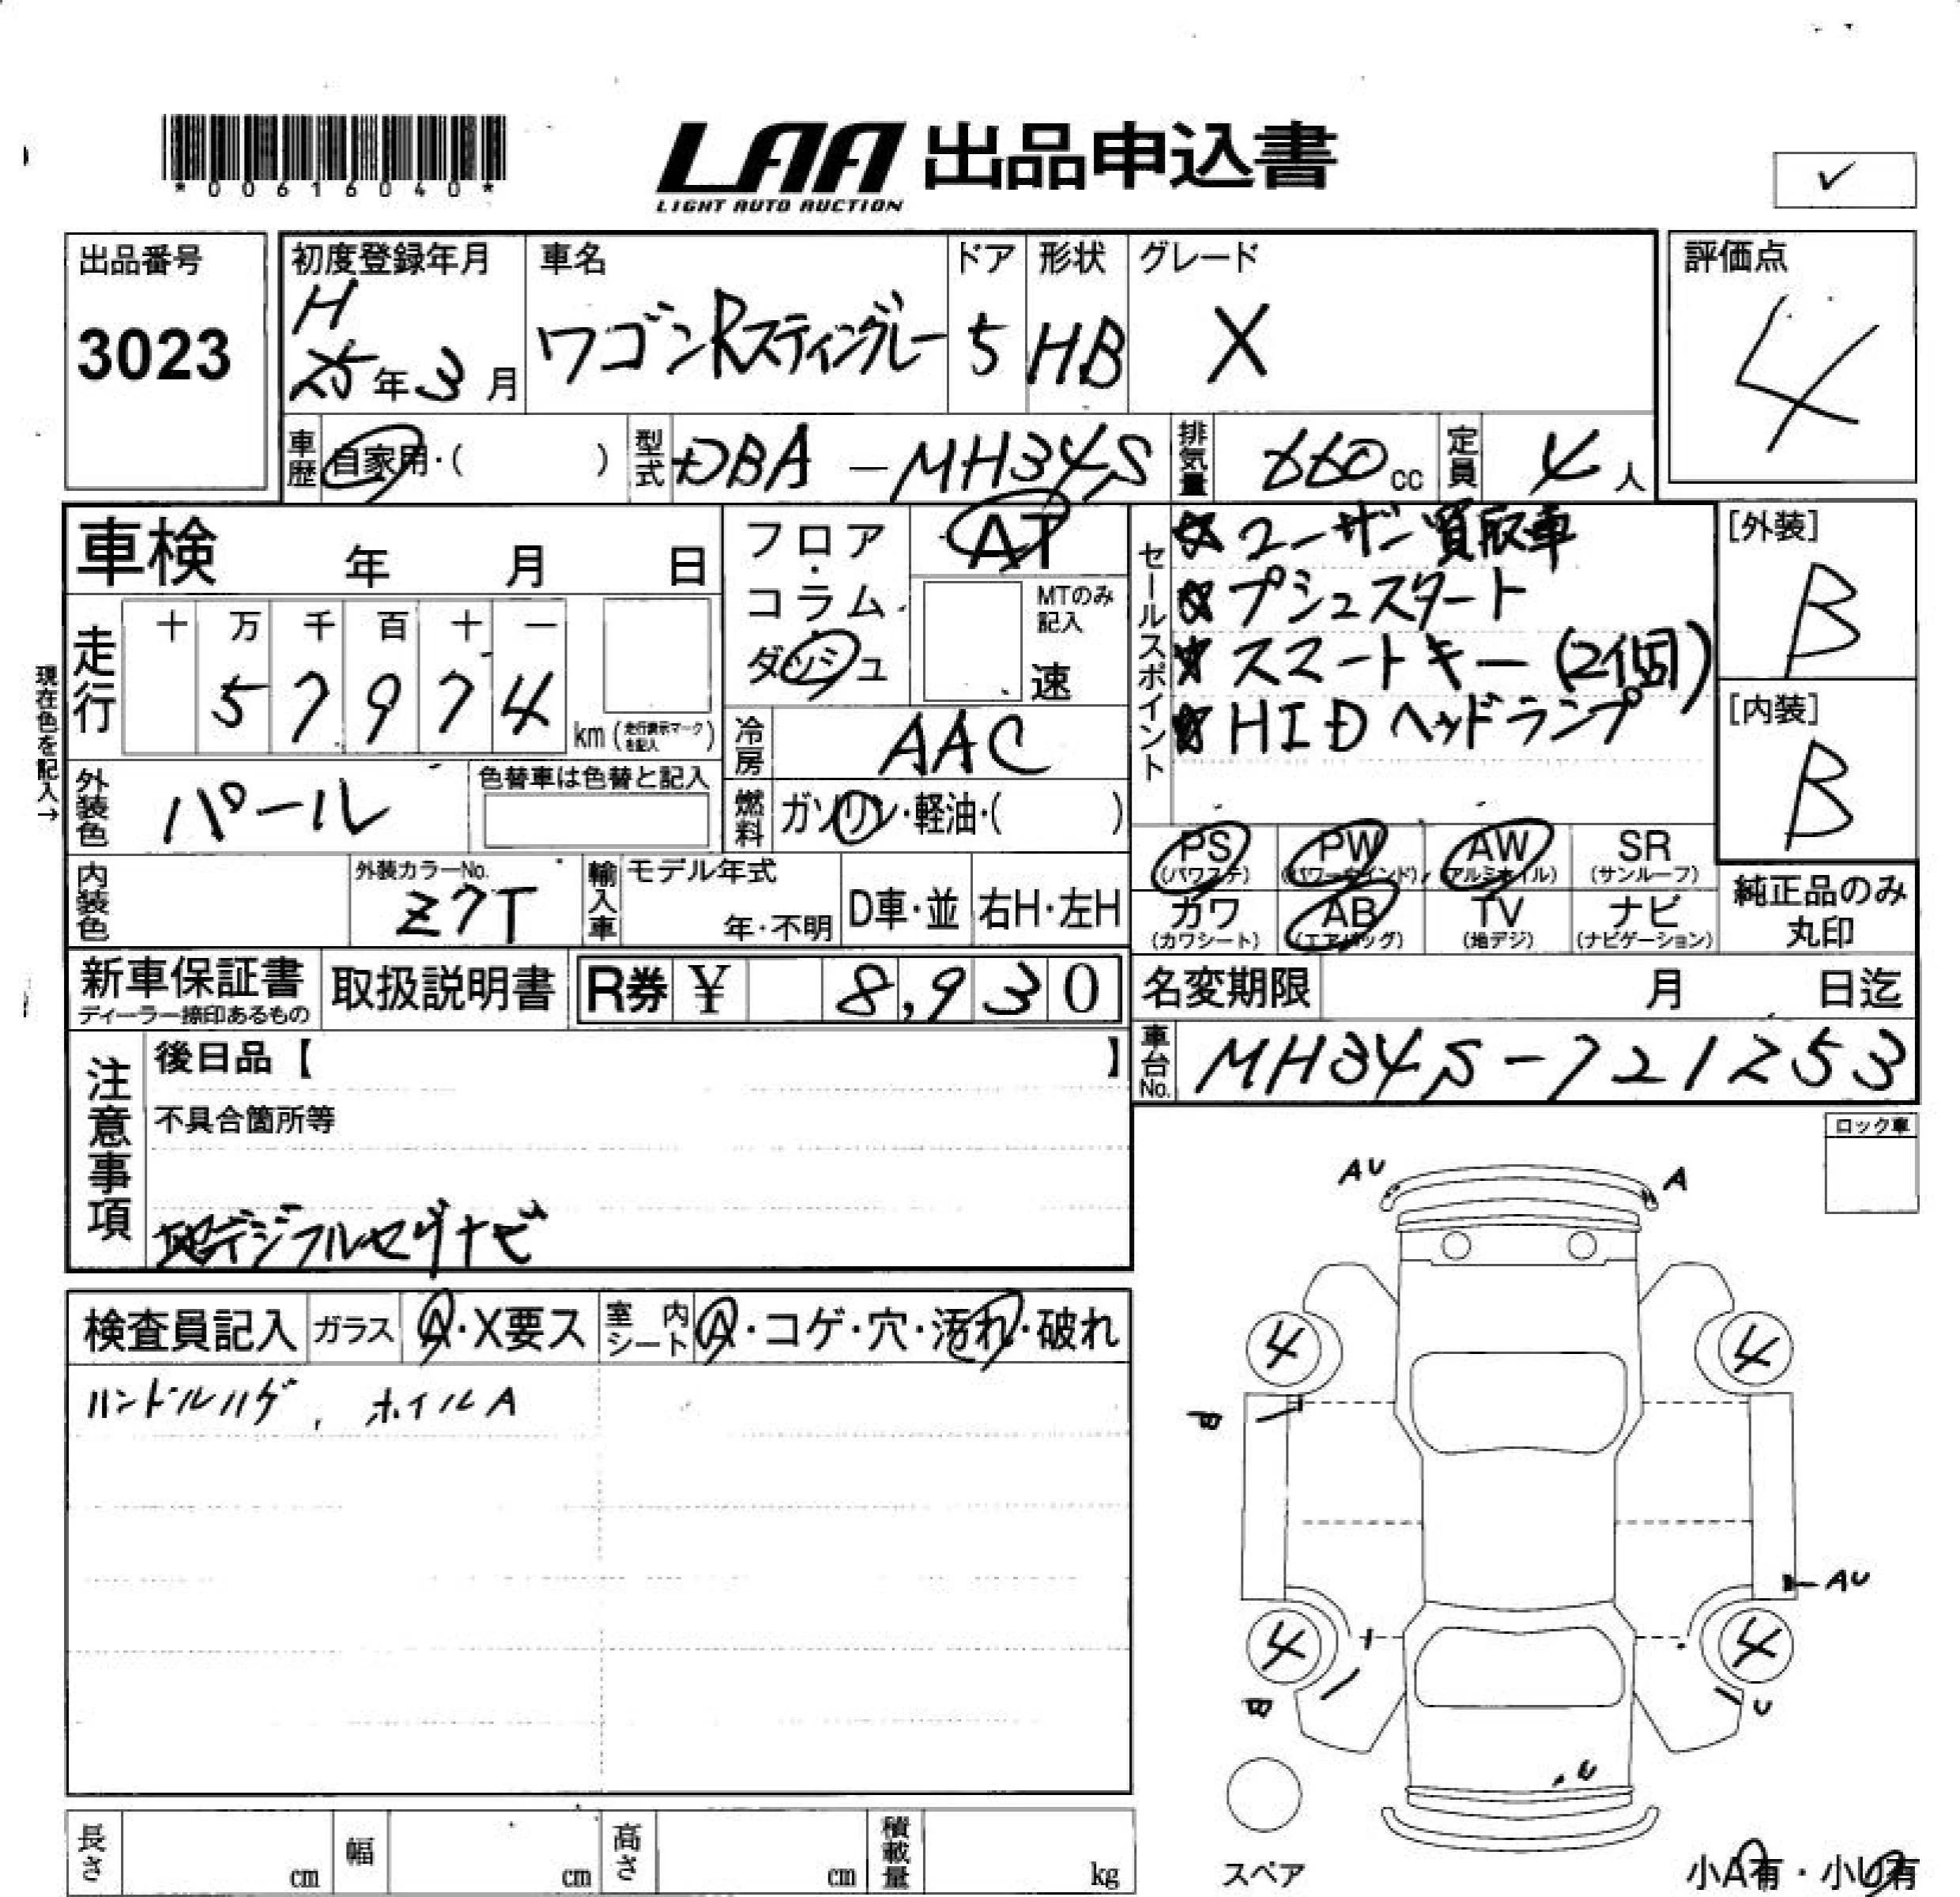 *00616040*
LAA 出品申込書
LIGHT AUTO AUCTION
✓
出品番号
3023
初度登録年月
H
25年3月
車名
ワゴンRスティングレー
ドア
5
形状
HB
グレード
X
評価点
4
車歴 自家用・( )
型式 DBA-MH34S
排気量 660cc
定員 4人
車検 年 月 日
フロア・コラム・ダッシュ
AT
MTのみ記入
速
セールスポイント
☆ユーザー買取車
☆プシュスタート
☆スマートキー(2個)
☆HIDヘッドランプ
[外装]
B
[内装]
B
現在色を記入→
走行
十 万 千 百 十 一
5 7 9 7 4
km(走行表示マークを記入)
冷房 AAC
外装色 パール
色替車は色替と記入
燃料 ガソリン・軽油・( )
内装色
外装カラーNo.
Z7T
輸入車
モデル年式
年・不明
D車・並
右H・左H
PS (パワステ)
PW (パワーウインド)
AW (アルミホイル)
SR (サンルーフ)
カワ (カワシート)
AB (エアバッグ)
TV (地デジ)
ナビ (ナビゲーション)
純正品のみ
丸印
新車保証書
ディーラー捺印あるもの
取扱説明書
R券 ¥ 8,930
名変期限 月 日迄
車台No. MH34S-721253
注意事項
後日品【 】
不具合箇所等
地デジフルセグナビ
ロック車
検査員記入
ガラス A・X要ス
室内シート A・コゲ・穴・汚れ・破れ
ハンドルハゲ, ホイルA
AU
A
4
4
B
AU
4
4
B
U
U
スペア
長さ cm
幅 cm
高さ cm
積載量 kg
小A有・小U有